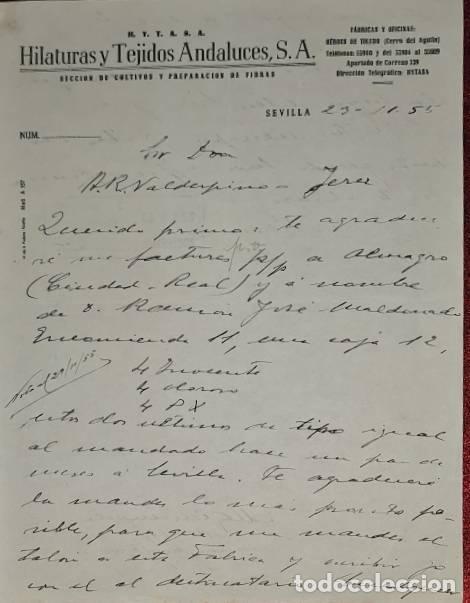 H. Y. T. A. S. A.
Hilaturas y Tejidos Andaluces, S. A.
SECCION DE CULTIVOS Y PREPARACION DE FIBRAS
FÁBRICAS Y OFICINAS:
HÉROES DE TOLEDO (Cerro del Aguila)
Teléfonos: 33900 y del 33904 al 33909
Apartado de Correos 239
Dirección Telegráfica: HYTASA
SEVILLA 23-11-55
NUM.
Sr Don
A.R. Valdespino - Jerez
Querido primo: te agradece
ré me factures p/p a Almagro
(Ciudad-Real) y á nombre
de D. Ramon José Maldonado
Encomienda 11, una caja 12,
4 Inocente
4 oloroso
4 PX
estos dos ultimos de tipo igual
al mandado hace un par de
meses á Sevilla. Te agradeceré
la mandes lo mas pronto po-
sible, para que me mandes el
talón a esta Fabrica y escribir yo
con el al destinatario
todocoleccion